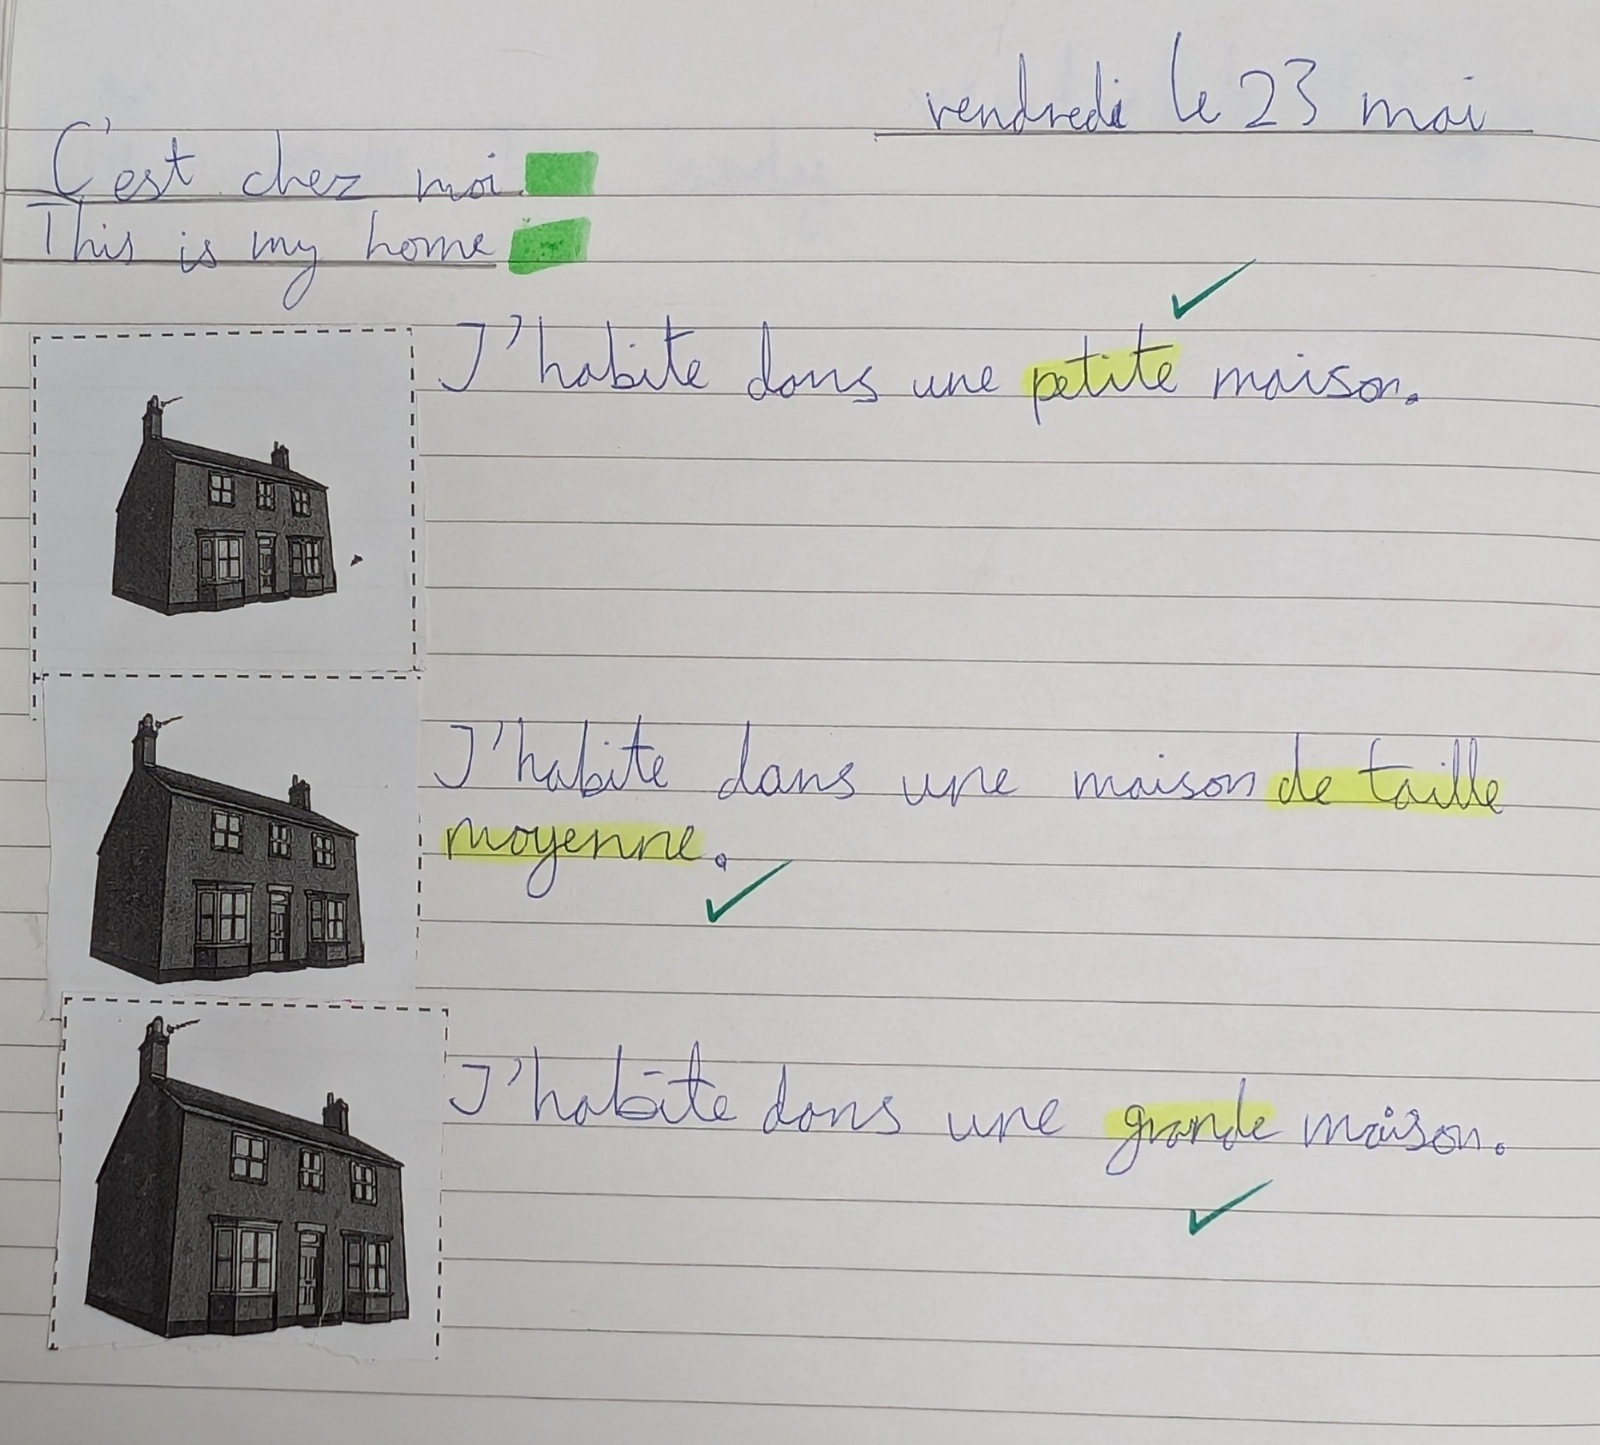 vendredi le 23 mai
C'est chez moi
This is my home
J'habite dans une petite maison.
J'habite dans une maison de taille
moyenne.
J'habite dans une grande maison.